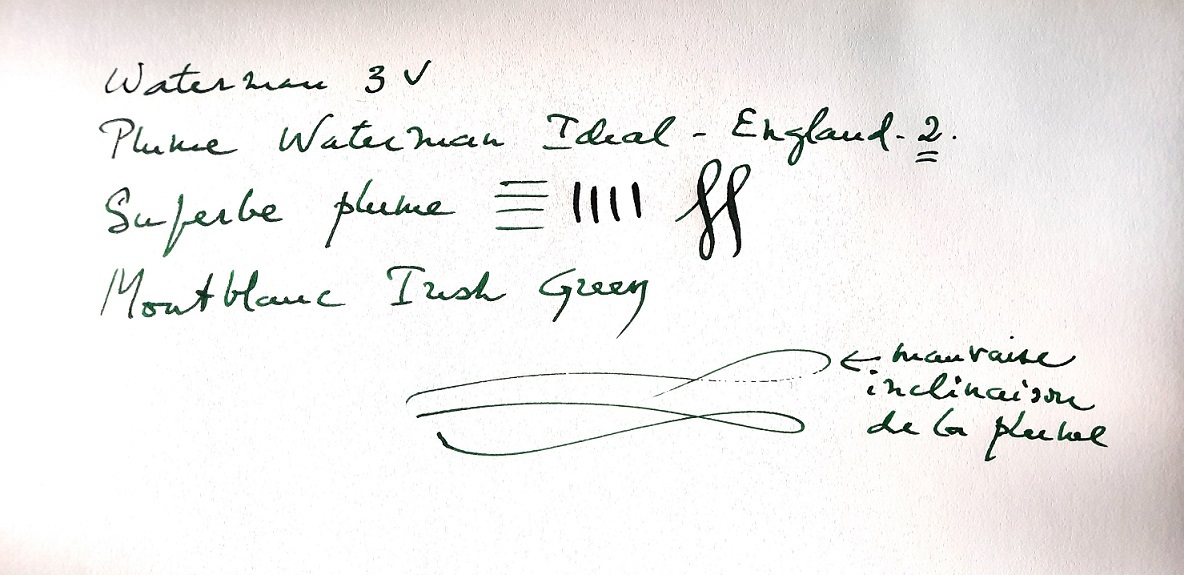 Waterman 3 V
Plume Waterman Ideal - England - 2.
Superbe plume
Montblanc Irish Green
← mauvaise
inclinaison
de la plume